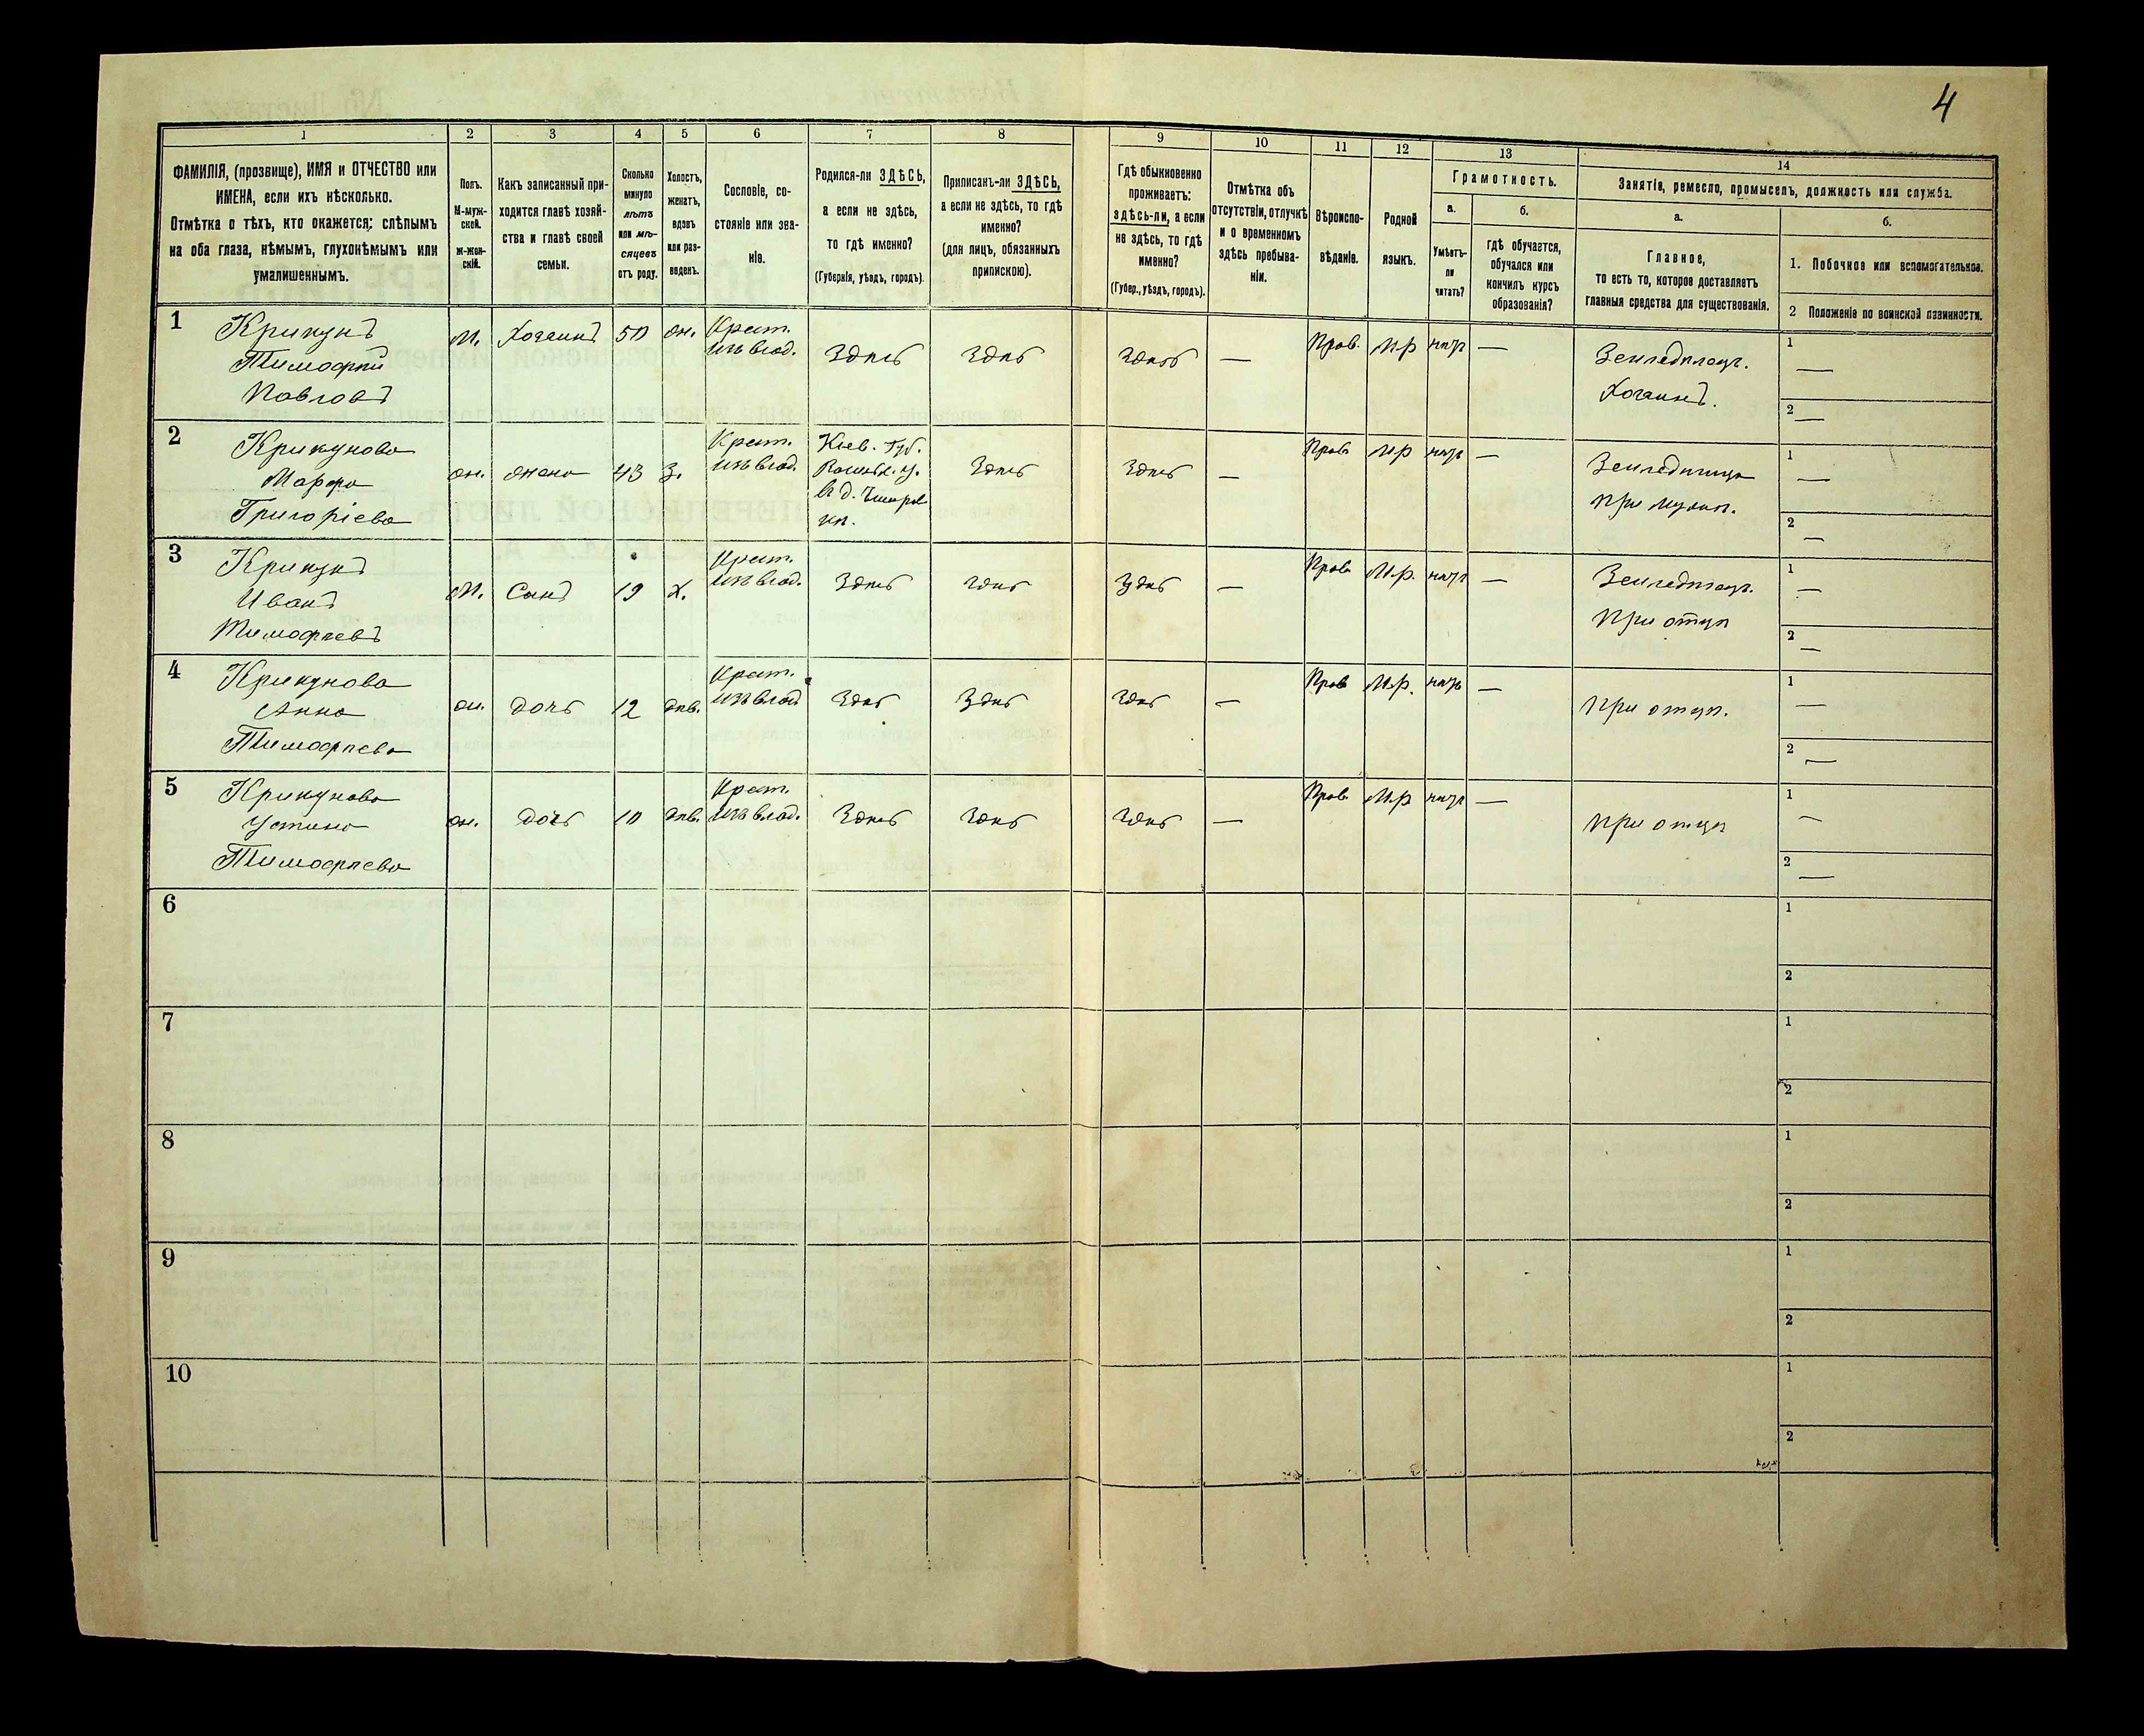 4
1 2 3 4 5 6 7 8 9 10 11 12 13 14
ФАМИЛІЯ, (прозвище), ИМЯ и ОТЧЕСТВО или
ИМЕНА, если ихъ нѣсколько.
Отмѣтка о тѣхъ, кто окажется: слѣпымъ
на оба глаза, нѣмымъ, глухонѣмымъ или
умалишеннымъ.
Полъ.
М-муж-
ской.
ж-жен-
скій.
Какъ записанный при-
ходится главѣ хозяй-
ства и главѣ своей
семьи.
Сколько
минуло
лѣтъ
или мѣ-
сяцевъ
отъ роду.
Холостъ,
женатъ,
вдовъ
или раз-
веденъ.
Сословіе, со-
стояніе или зва-
ніе.
Родился-ли ЗДѢСЬ,
а если не здѣсь,
то гдѣ именно?
(Губернія, уѣздъ, городъ).
Приписанъ-ли ЗДѢСЬ,
а если не здѣсь, то гдѣ
именно?
(для лицъ, обязанныхъ
припискою).
Гдѣ обыкновенно
проживаетъ:
здѣсь-ли, а если
не здѣсь, то гдѣ
именно?
(Губер., уѣздъ, городъ).
Отмѣтка объ
отсутствіи, отлучкѣ
и о временномъ
здѣсь пребыва-
ніи.
Вѣроиспо-
вѣданіе.
Родной
языкъ.
Грамотность.
а.
Умѣетъ-
ли
читать?
б.
гдѣ обучается,
обучался или
кончилъ курсъ
образованія?
Занятіе, ремесло, промыселъ, должность или служба.
а.
Главное,
то есть то, которое доставляетъ
главныя средства для существованія.
б.
1. Побочное или вспомогательное.
2 Положеніе по воинской повинности.
1
Крикунъ
Тимофѣй
Павловъ
м.
Хозяинъ
50
ж.
Крест.
изъ влад.
Здѣсь
Здѣсь
Здѣсь
—
Прав.
М.р
нѣтъ
—
Земледѣлецъ.
Хозяинъ.
1
—
2
—
2
Крикунова
Марфа
Григоріева
ж.
жена
43
З.
Крест.
изъ влад.
Кіев. Губ.
Васильк. у.
Здѣсь
Здѣсь
—
Прав.
М.р
нѣтъ
—
при мужѣ.
1
—
2
—
3
Крикунъ
Иванъ
Тимофѣевъ
М.
Сынъ
19
Х.
Крест.
изъ влад.
Здѣсь
Здѣсь
Здѣсь
—
Прав.
М.р.
нѣтъ
—
Земледѣлецъ.
При отцѣ
1
—
2
—
4
Крикунова
Анна
Тимофѣева
ж.
дочь
12
дѣв.
Крест.
изъ влад
Здѣсь
Здѣсь
Здѣсь
—
Прав
М.р.
нѣтъ
—
при отцѣ.
1
—
2
—
5
Крикунова
Устина
Тимофѣева
ж.
дочь
10
дѣв.
Крест.
изъ влад.
Здѣсь
Здѣсь
Здѣсь
—
Прав.
М.р
нѣтъ
—
при отцѣ
1
—
2
—
6
1
2
7
1
2
8
1
2
9
1
2
10
1
2